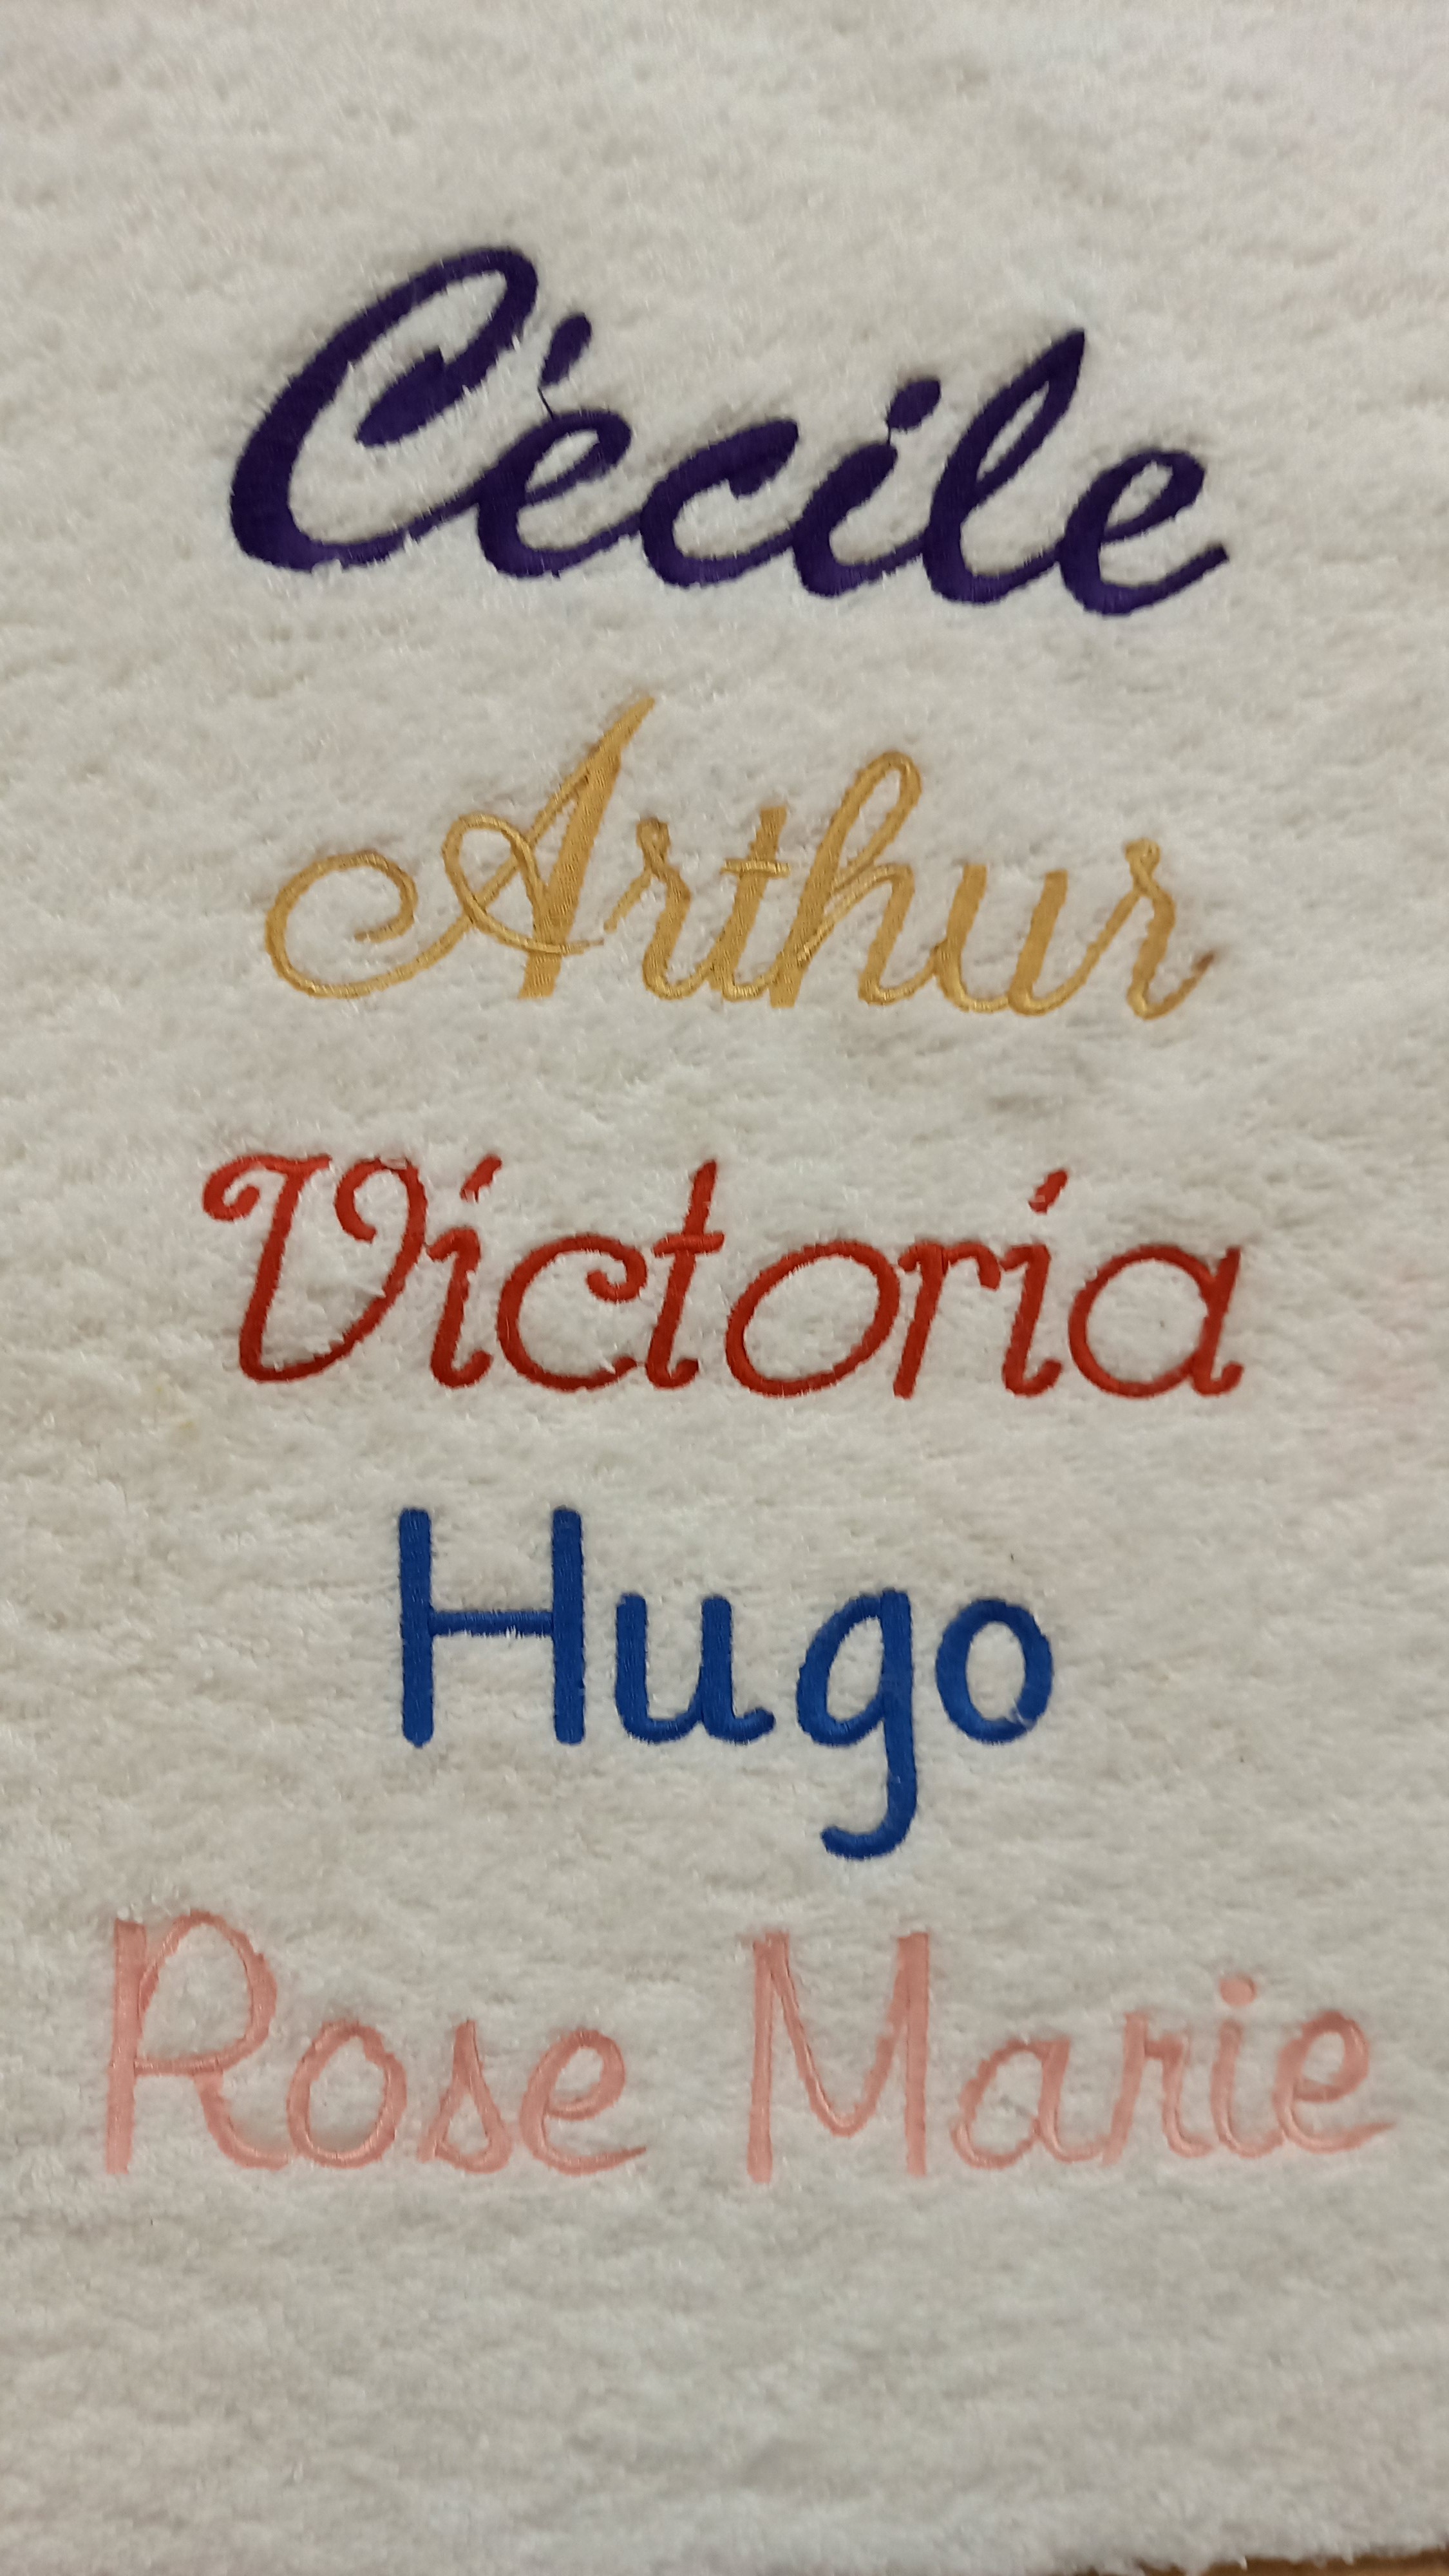 Cécile
Arthur
Victoria
Hugo
Rose Marie